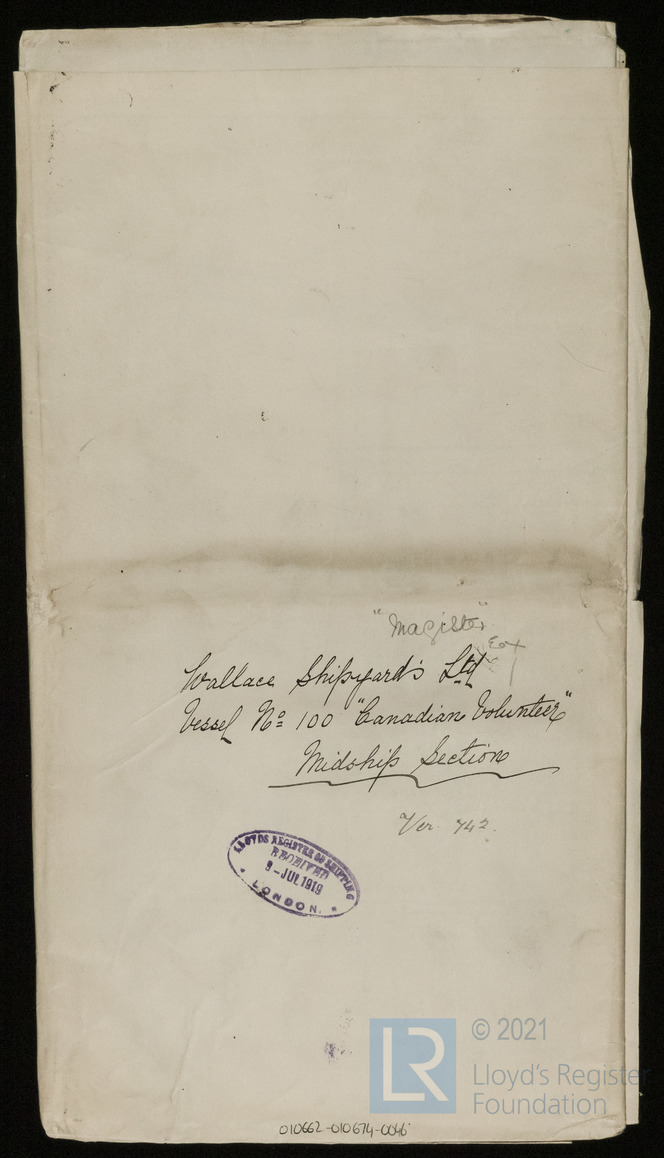 "Magister"
Wallace Shipyard's Ltd
Vessel No 100 "Canadian Volunteer"
Midship Section
Ver. 742.
LLOYDS REGISTER OF SHIPPING
RECEIVED
9-JUL 1919
* LONDON. *
LR
© 2021
Lloyd's Register
Foundation
010662-010674-0046